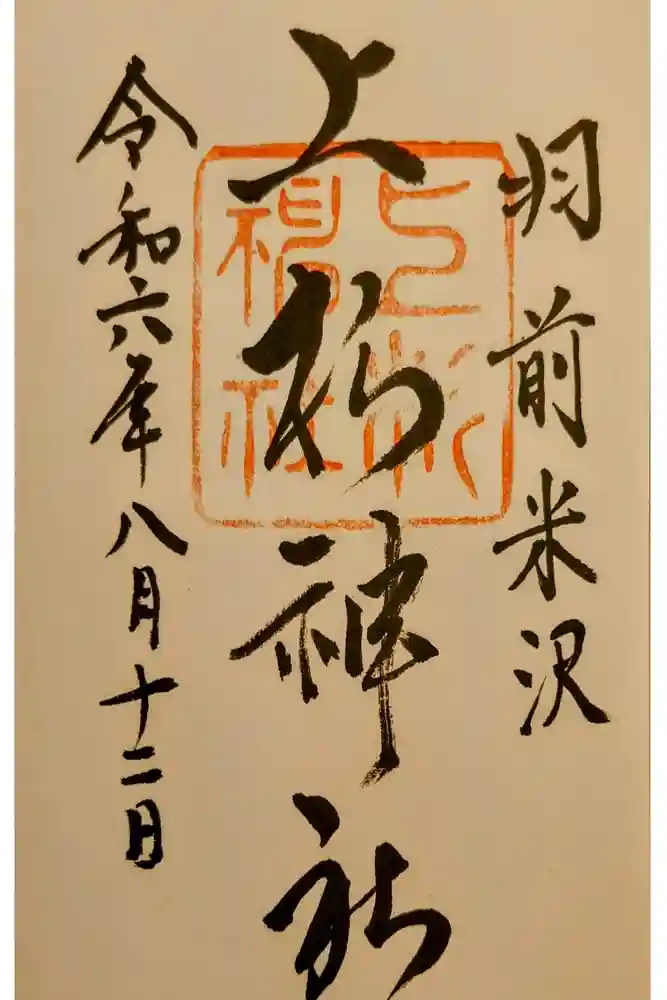 羽前米沢
上杉神社
上杉
神社
令和六年八月十二日